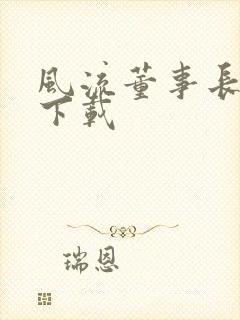 風流董事長
下載
瑞恩